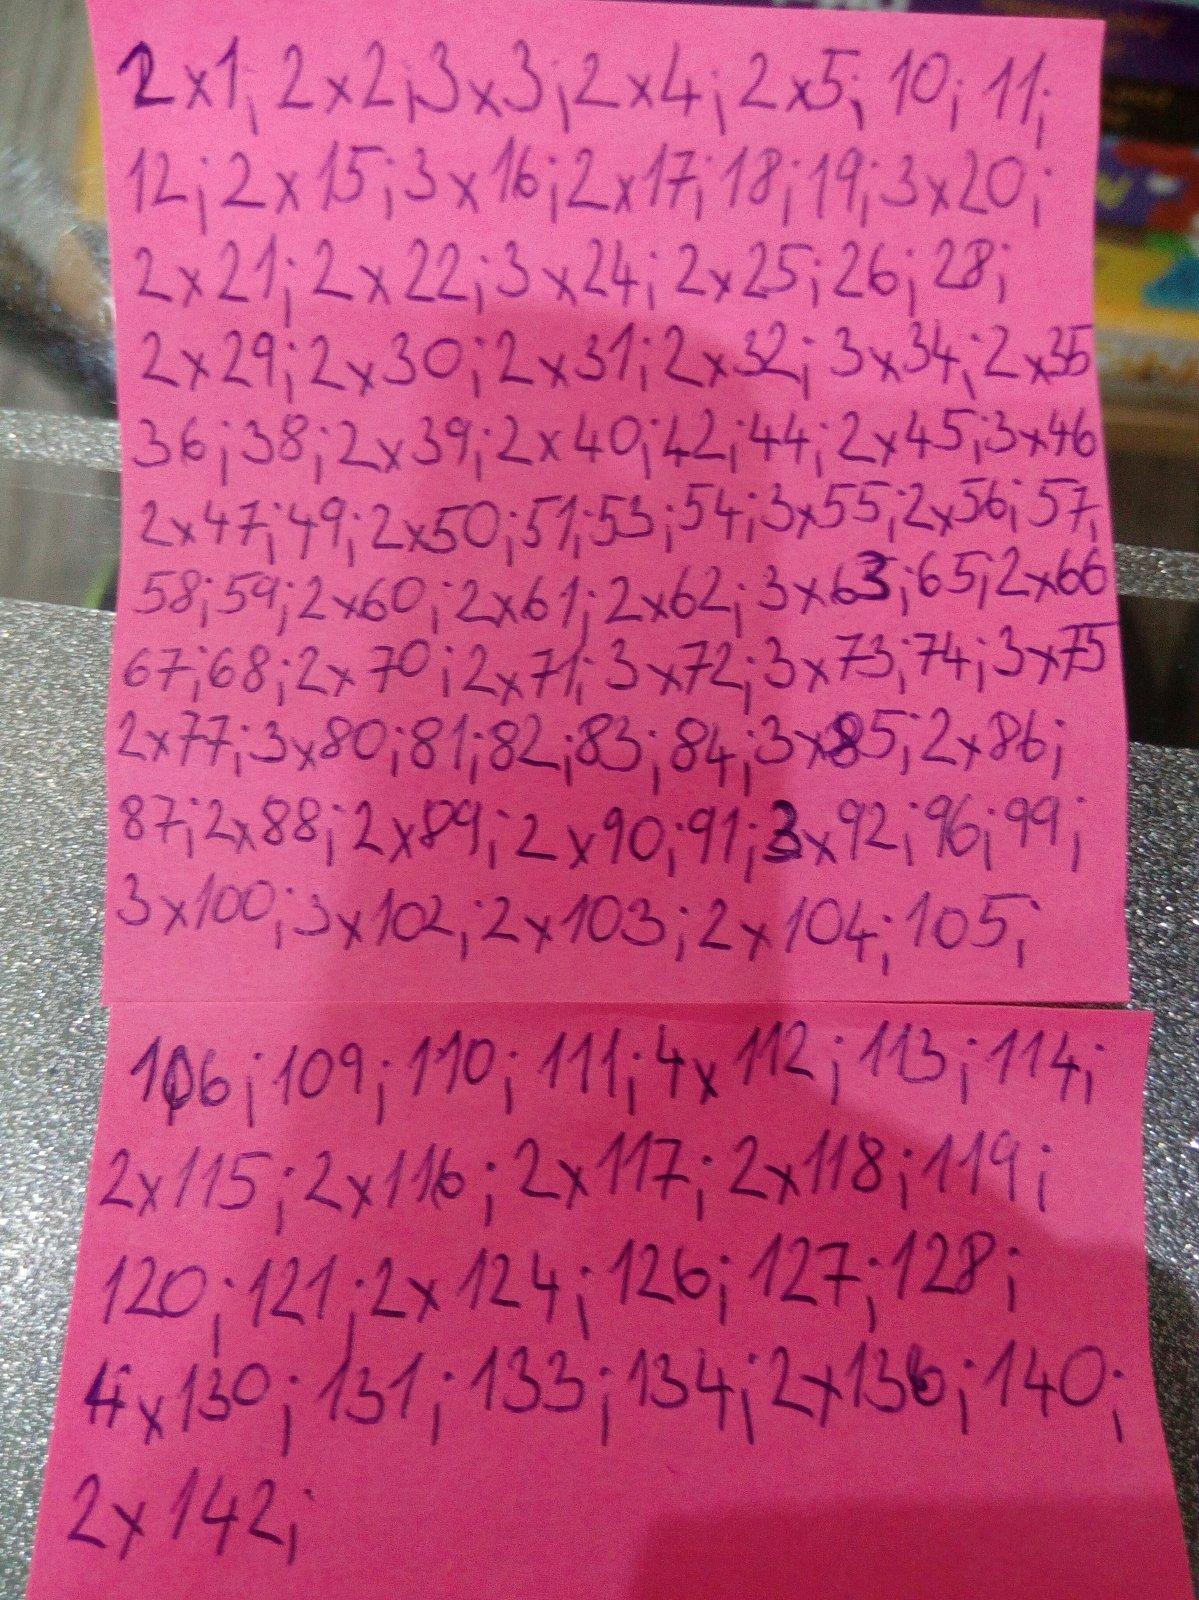 2x1; 2x2; 3x3; 2x4; 2x5; 10; 11;
12; 2x15; 3x16; 2x17; 18; 19; 3x20;
2x21; 2x22; 3x24; 2x25; 26; 28;
2x29; 2x30; 2x31; 2x32; 3x34; 2x35
36; 38; 2x39; 2x40; 42; 44; 2x45; 3x46
2x47; 49; 2x50; 51; 53; 54; 3x55; 2x56; 57;
58; 59; 2x60; 2x61; 2x62; 3x63; 65; 2x66
67; 68; 2x70; 2x71; 3x72; 3x73; 74; 3x75
2x77; 3x80; 81; 82; 83; 84; 3x85; 2x86;
87; 2x88; 2x89; 2x90; 91; 3x92; 96; 99;
3x100; 3x102; 2x103; 2x104; 105;
106; 109; 110; 111; 4x112; 113; 114;
2x115; 2x116; 2x117; 2x118; 119;
120; 121; 2x124; 126; 127; 128;
4x130; 131; 133; 134; 2x136; 140;
2x142;